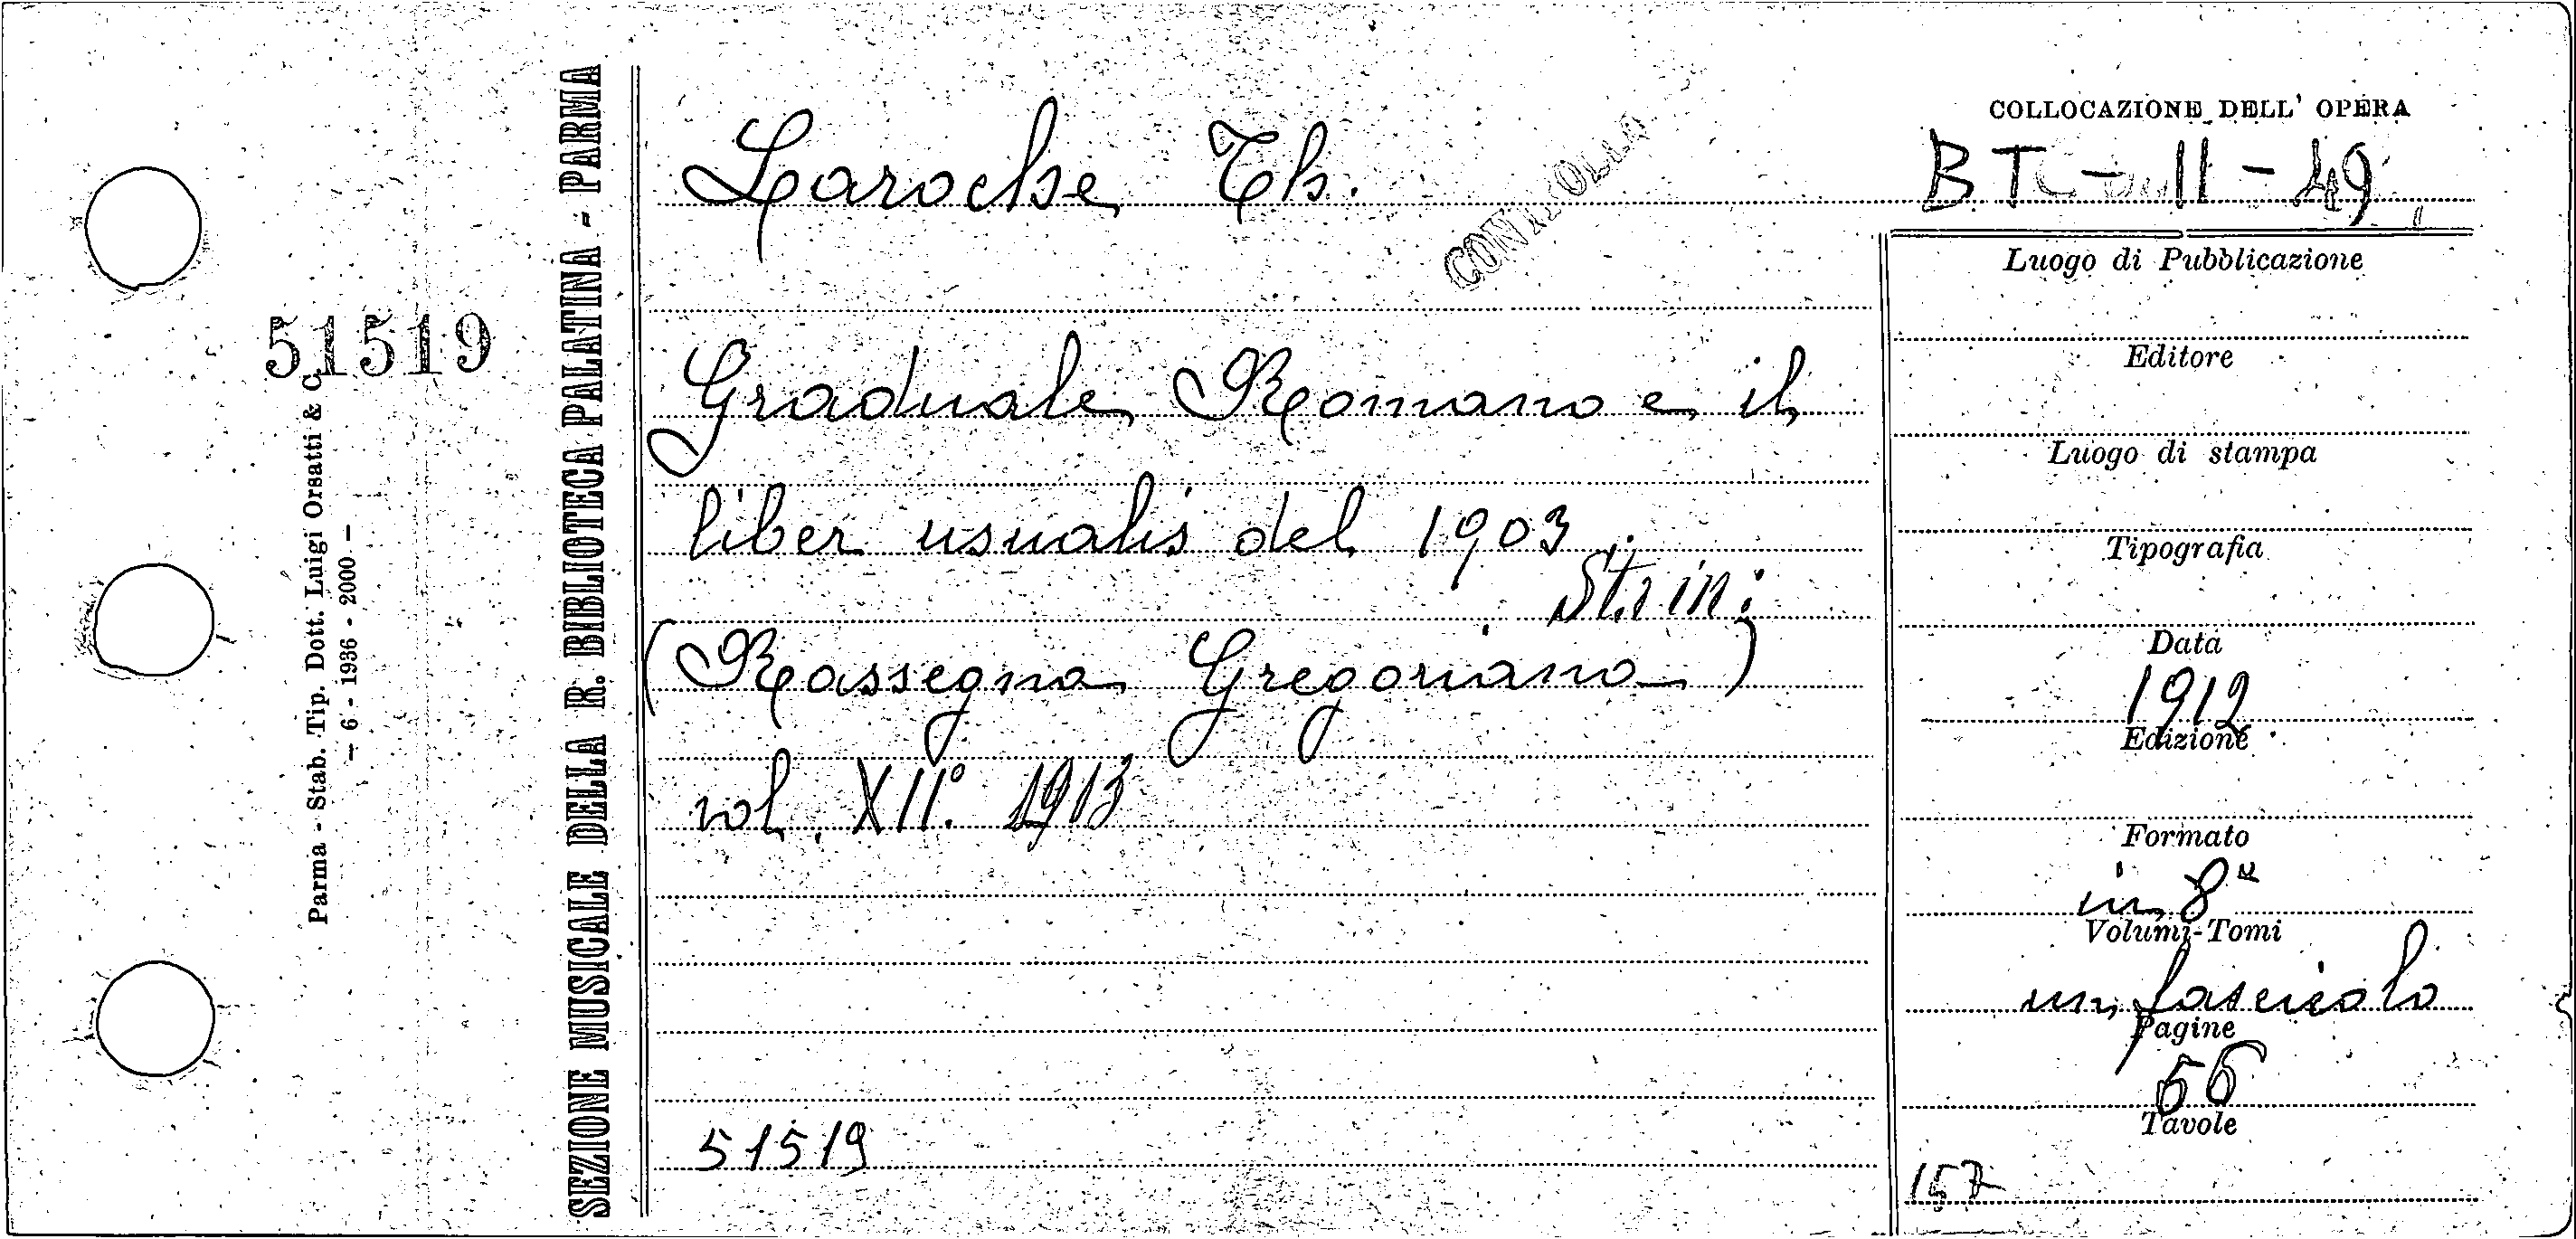 51519
Parma - Stab. Tip. Dott. Luigi Orsatti & C.
— 6 - 1936 - 2000 —
SEZIONE MUSICALE DELLA R. BIBLIOTECA PALATINA - PARMA
Laroche Th.
CONTROLLO
Graduale Romano e il
liber usualis del 1903
(Rassegna Gregoriana)
vol. XII° 1913
51519
COLLOCAZIONE DELL' OPERA
BT - II - 49
Luogo di Pubblicazione
Editore
Luogo di stampa
Tipografia
Data
1912
Edizione
Formato
in 8°
Volumi-Tomi
un fascicolo
Pagine
56
Tavole
157